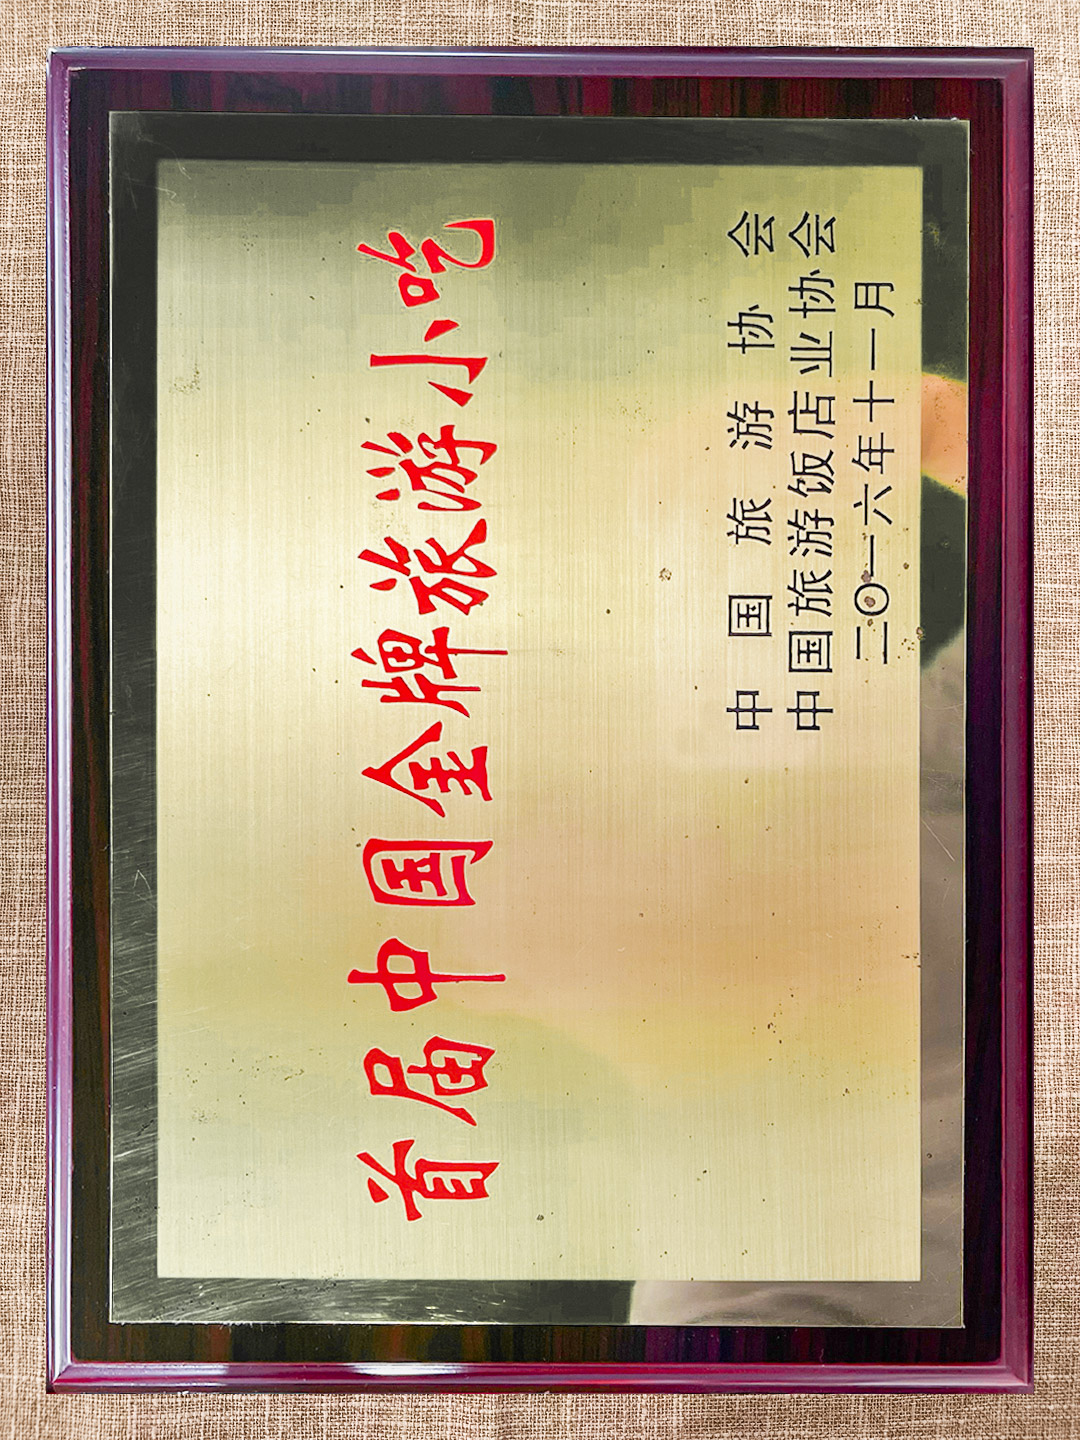 首届中国金牌旅游小吃
中国旅游协会
中国旅游饭店业协会
二〇一六年十一月